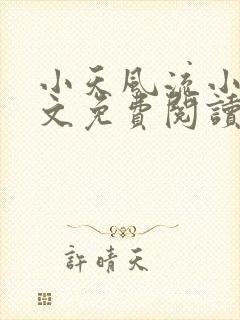 小天風流小
文免費閱讀
許晴天